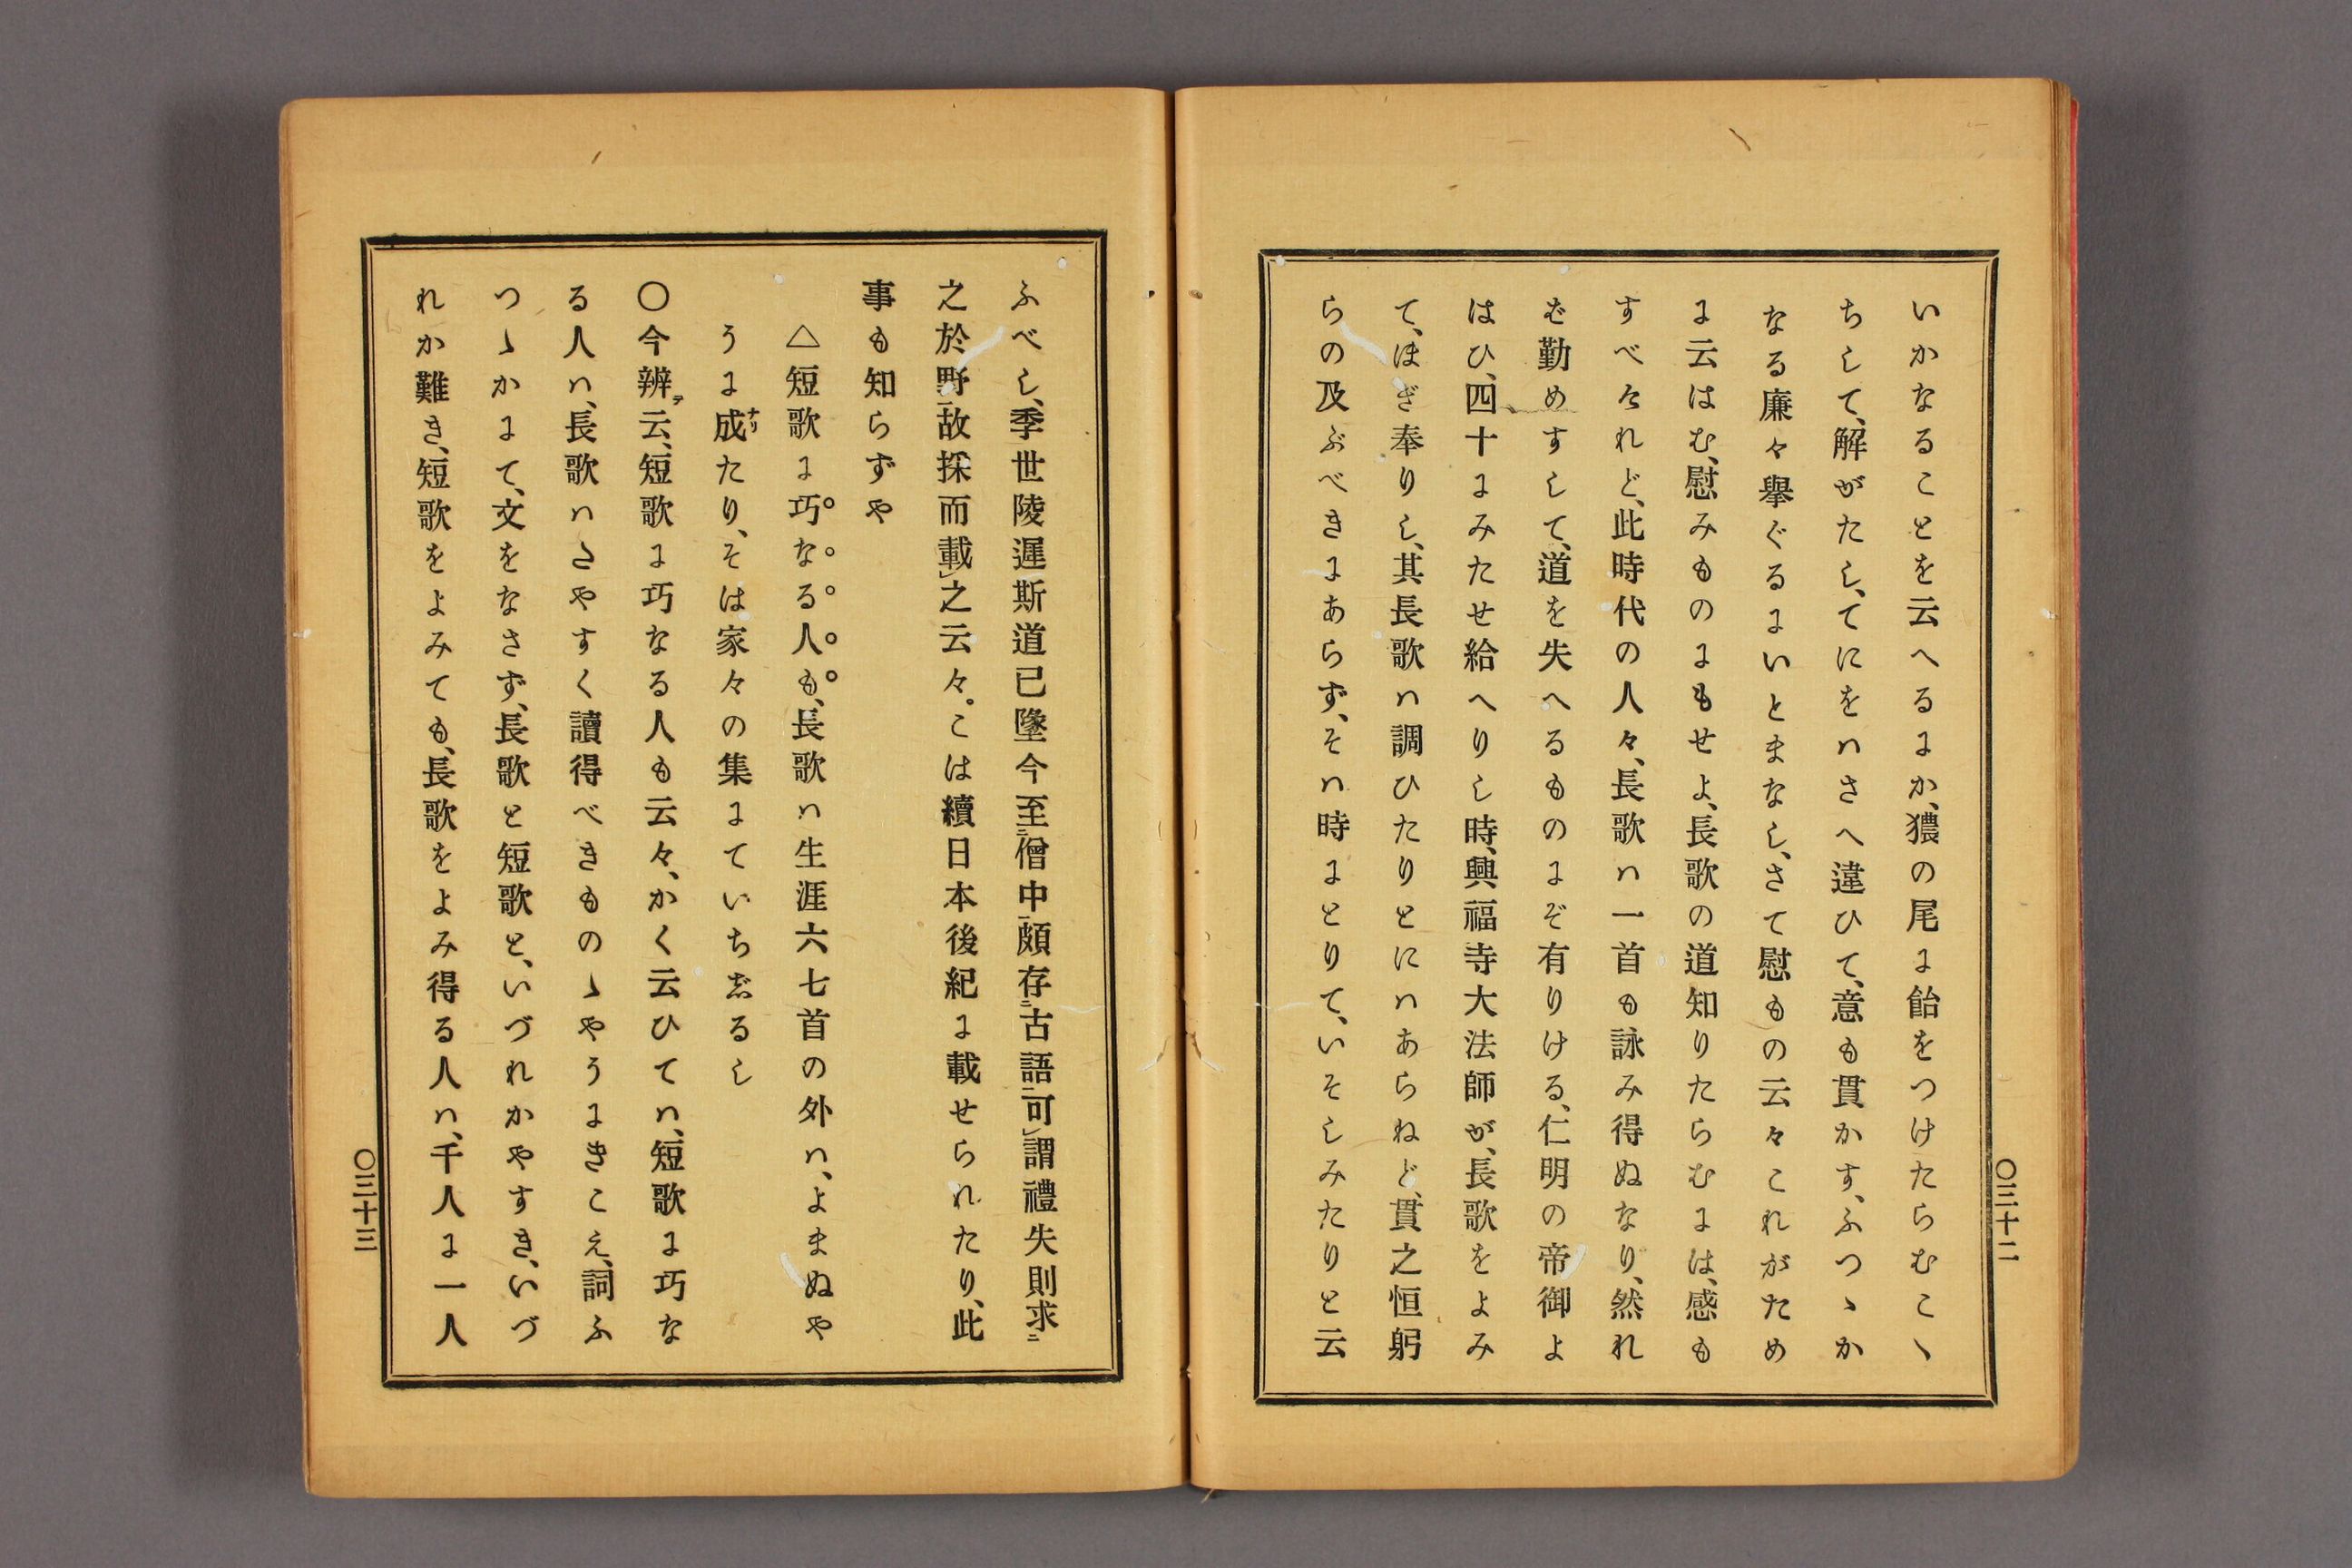 いかなることを云へるにか、獽の尾に飴をつけたらむこゝ
ちして、解がたし、てにをハさへ違ひて、意も貫かす、ふつゝか
なる廉々擧ぐるにいとまなし、さて慰もの云々これがため
に云はむ、慰みものにもせよ、長歌の道知りたらむには、感も
すべけれど、此時代の人々、長歌ハ一首も詠み得ぬなり、然れ
む勤めすして、道を失へるものにぞ有りける、仁明の帝御よ
はひ、四十にみたせ給へりし時、興福寺大法師が、長歌をよみ
て、ほぎ奉りし、其長歌ハ調ひたりとにハあらねど、貫之恒躬
らの及ぶべきにあらず、そハ時にとりて、いそしみたりと云
〇三十二
ふべし、季世陵遲斯道已墜今至ニ僧中ニ頗存ニ古語ニ可レ謂禮失則求ニ
之於野ニ故採而載レ之云々。こは續日本後紀に載せられたり、此
事も知らずや
△短歌に巧なる人も、長歌ハ生涯六七首の外ハ、よまぬや
うに成ナリたり、そは家々の集にていちじるし
〇今辨ヲ云、短歌に巧なる人も云々、かく云ひてハ、短歌に巧な
る人ハ、長歌ハたやすく讀得べきものゝやうにきこえ、詞ふ
つゝかにて、文をなさず、長歌と短歌と、いづれかやすき、いづ
れか難き、短歌をよみても、長歌をよみ得る人ハ、千人に一人
〇三十三